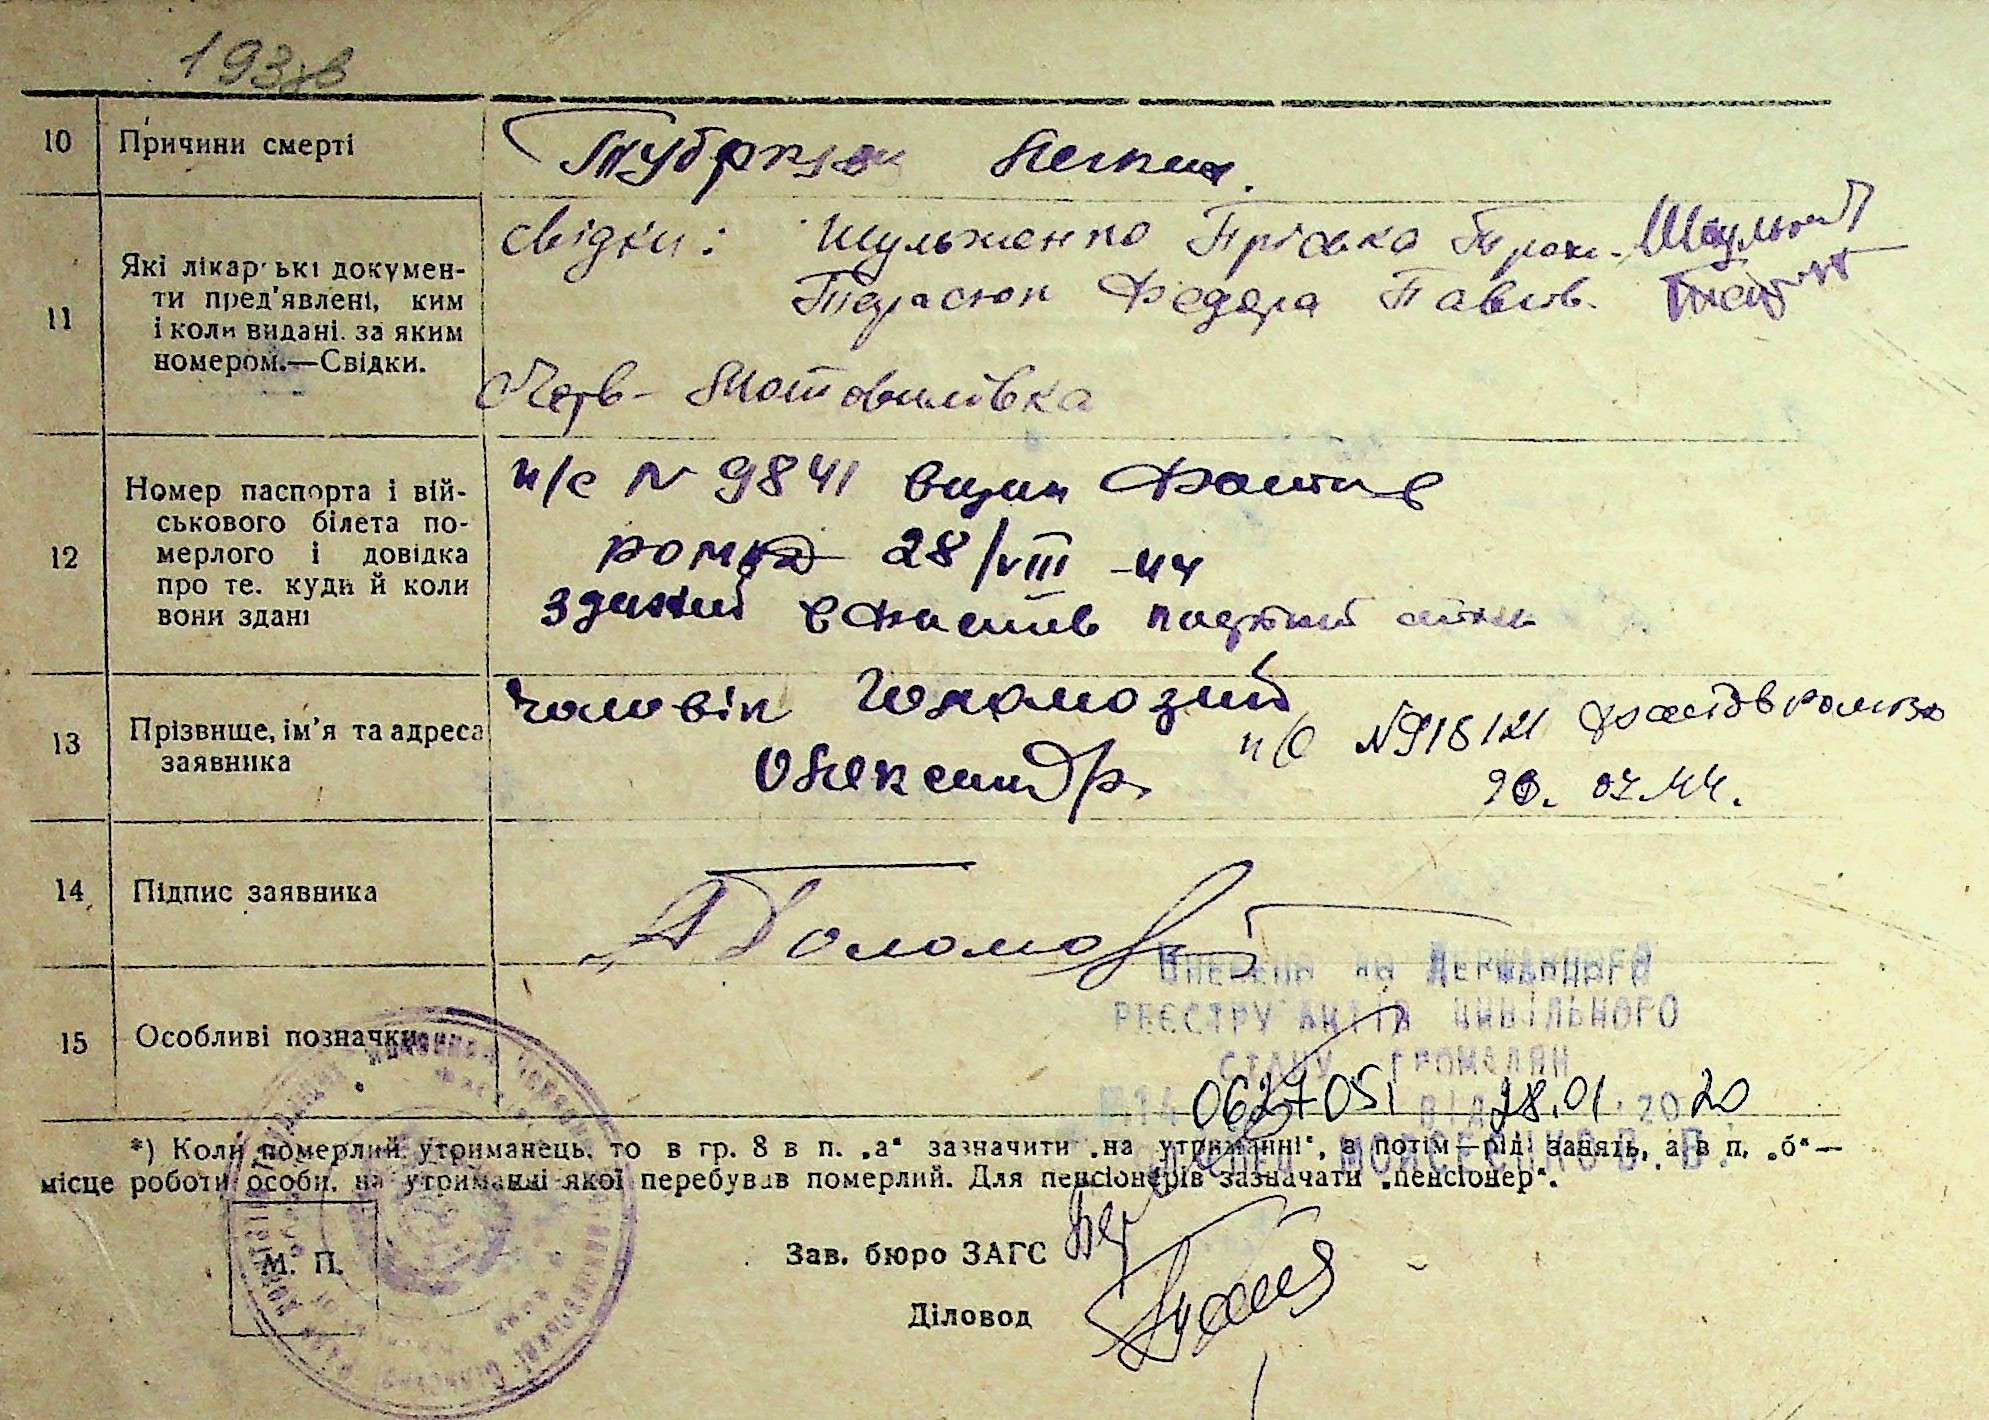 193зв
10 Причини смерті
Туберкульоз легких.
11 Які лікарські докумен-
ти пред'явлені, ким
і коли видані. за яким
номером.—Свідки.
Свідки: Шульженко Пріська Трох.
Тарасюк Федора Павлів.
Черв- Мотовилівка
12 Номер паспорта і вій-
ськового білета по-
мерлого і довідка
про те. куди й коли
вони здані
п/с N 9841 видан Фастів
28/VIII -44
зданий в Фастів
13 Прізвище, ім'я та адреса
заявника
Чоловік Голомозий
Олександр.
п/с №918121 Фастов
07.44.
14 Підпис заявника
А Голомозий
15 Особливі позначки
Внесено до Державного
реєстру актів цивільного
стану громадян
0627051 від 28.01.2020
Мойсеєнко В.В.
*) Коли померлий утриманець, то в гр. 8 в п. „а“ зазначити „на утриманні“, а потім—рід занять, а в п. „б“—
місце роботи особи, на утриманні якої перебував померлий. Для пенсіонерів зазначати „пенсіонер“.
М. П.
Зав. бюро ЗАГС
Діловод